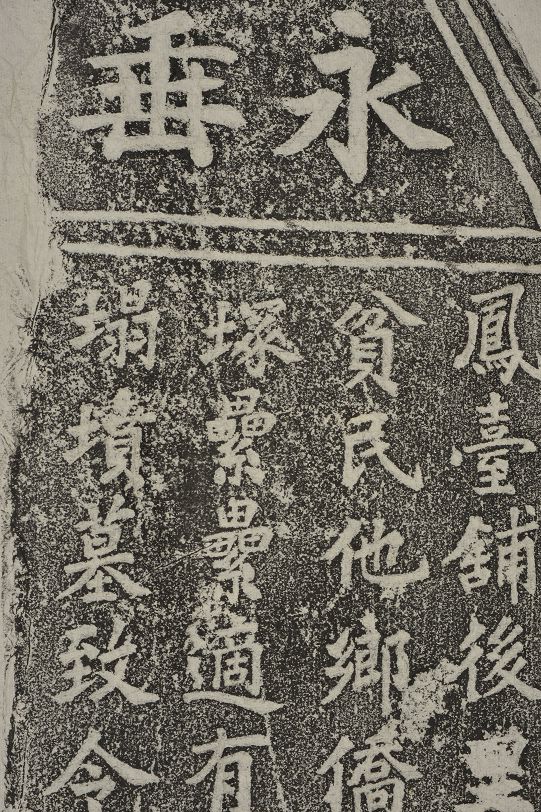 永垂
鳳臺舖後
貧民他鄉僑
塚纍纍適有
塌墳墓致令